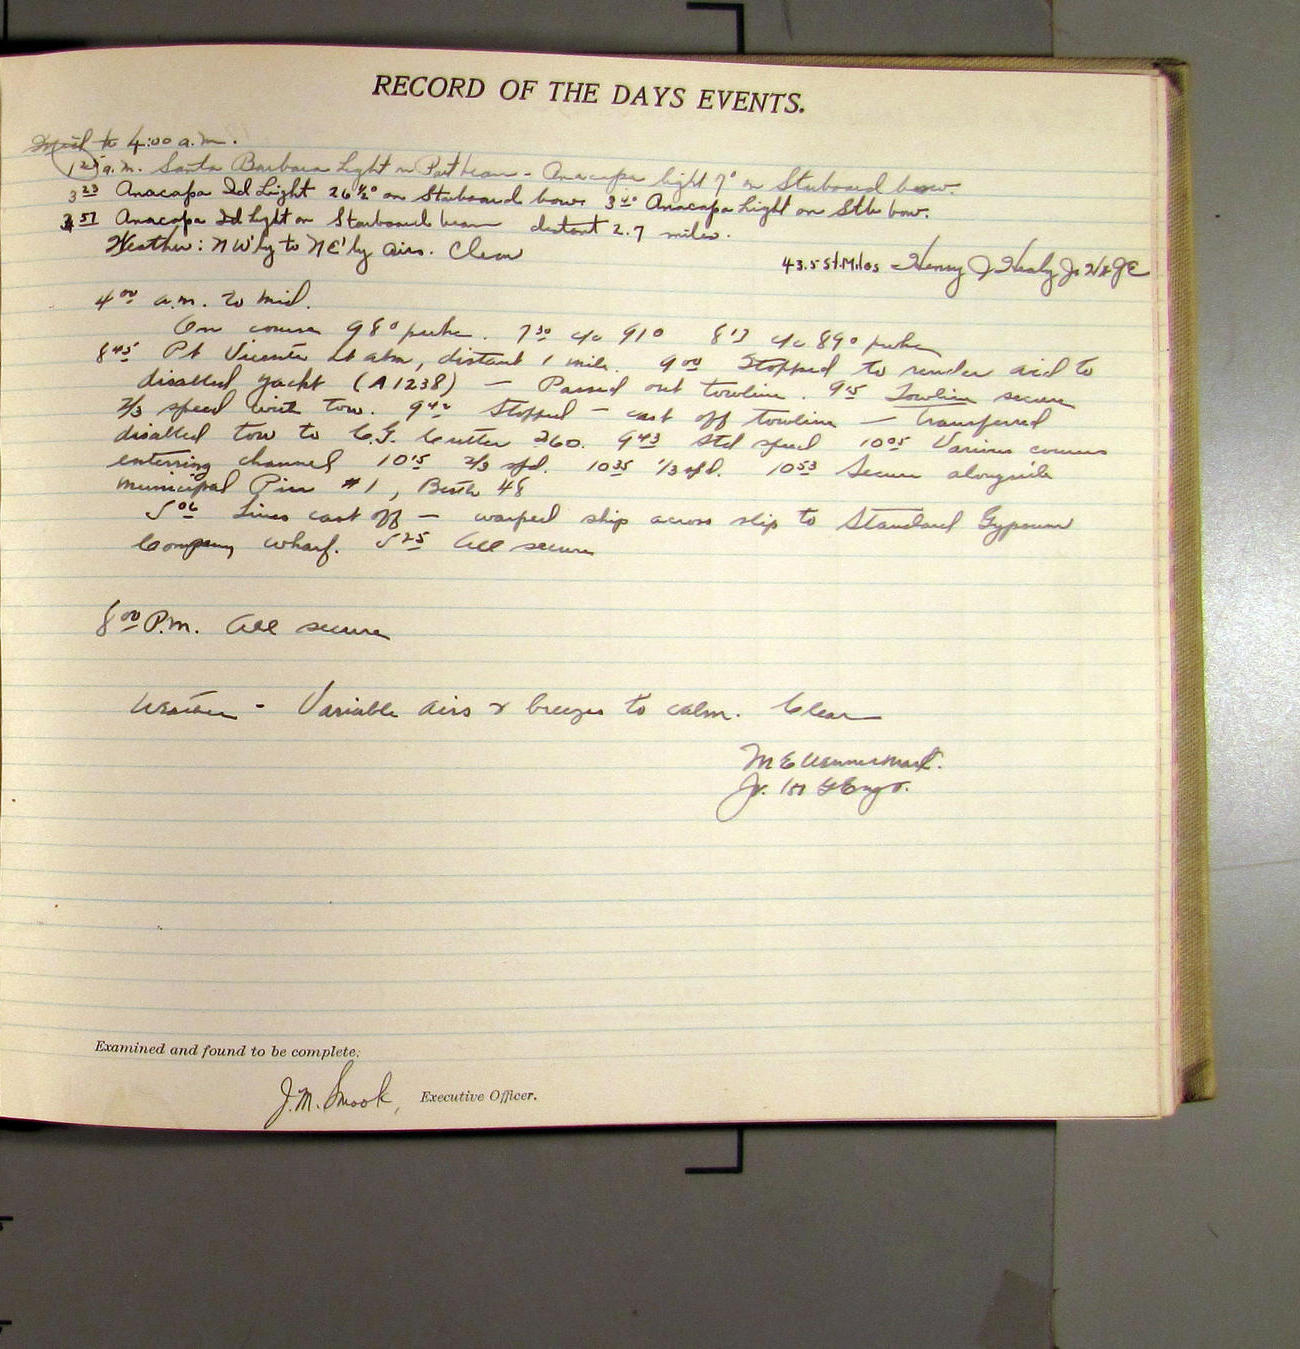 RECORD OF THE DAYS EVENTS.
Mid to 4:00 a.m.
125 a.m. Santa Barbara Light on Port beam - Anacapa light 7° on Starboard bow.
3 23 Anacapa Id Light 26½° on Starboard bow. 3 40 Anacapa Light on Stb bow.
3 57 Anacapa Id Light on Starboard beam distant 2.7 miles.
Weather: NW'ly to NE'ly airs. Clear
43.5 St. Miles Henry J Healy Jr. H & GE
4 00 a.m. to mid.
On course 98° psc. 7 30 c/c 91° 8 13 c/c 89° psc
8 45 Pt Vicente Lt abm, distant 1 mile. 9 00 Stopped to render aid to
disabled yacht (A1238) — Passed out towline. 9 15 Towline secure
2/3 speed with tow. 9 42 Stopped — cast off towline — transferred
disabled tow to C.G. Cutter 260. 9 43 Std speed 10 05 Various courses
entering channel 10 15 2/3 spd. 10 35 1/3 spd. 10 53 Secure alongside
municipal Pier #1, Berth 48
5 06 Lines cast off — warped ship across slip to Standard Gypsum
Company wharf. 5 25 All secure
8 00 P.M. All secure
Weather - Variable airs & breezes to calm. Clear
M E Wennermark.
Jr. H & G Engr.
Examined and found to be complete:
J.M. Smook, Executive Officer.